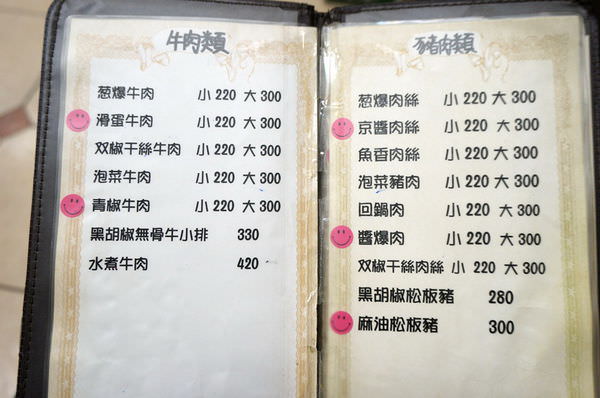 牛肉類
葱爆牛肉 小 220 大 300
滑蛋牛肉 小 220 大 300
双椒干絲牛肉 小 220 大 300
泡菜牛肉 小 220 大 300
青椒牛肉 小 220 大 300
黑胡椒無骨牛小排 330
水煮牛肉 420
豬肉類
葱爆肉絲 小 220 大 300
京醬肉絲 小 220 大 300
魚香肉絲 小 220 大 300
泡菜豬肉 小 220 大 300
回鍋肉 小 220 大 300
醬爆肉 小 220 大 300
双椒干絲肉絲 小 220 大 300
黑胡椒松板豬 280
麻油松板豬 300